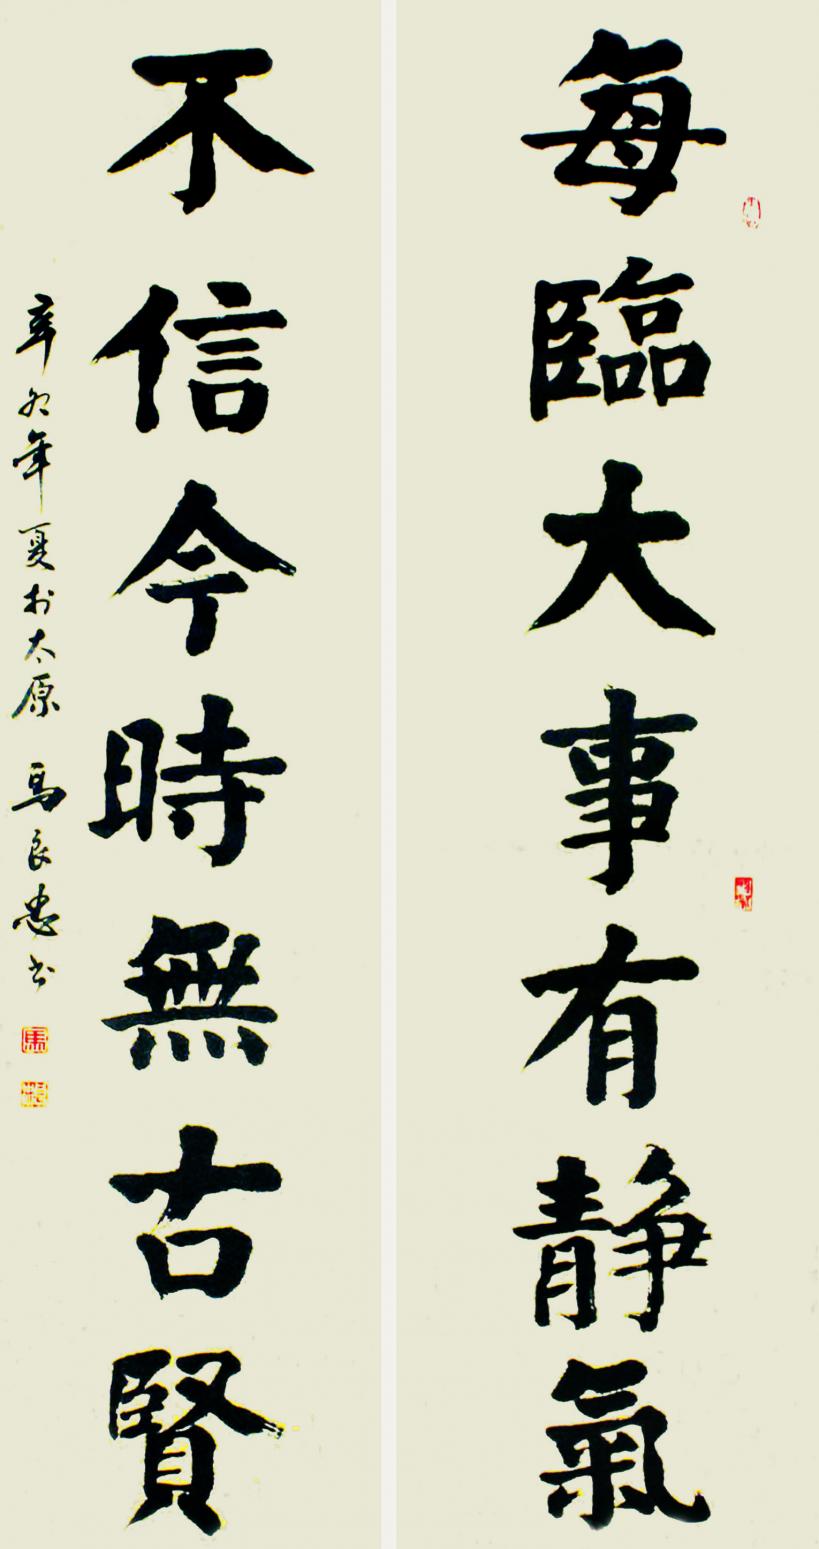 每臨大事有静氣
不信今時無古賢
辛卯年夏於太原 馬良忠书